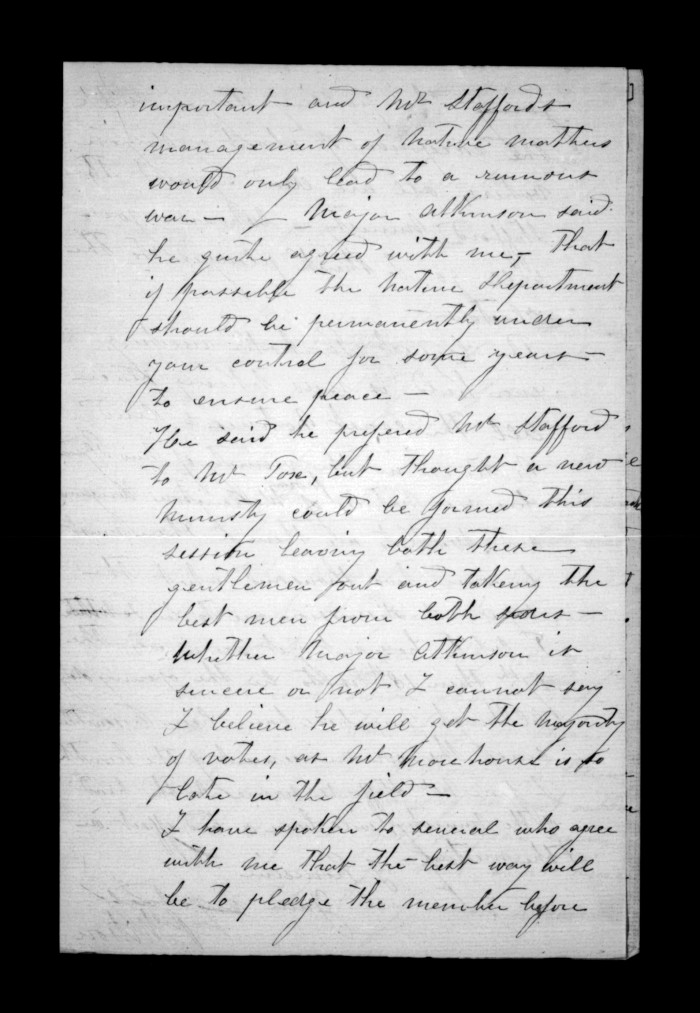 important and Mr Staffords
management of native matters
would only lead to a ruinous
war — Major Atkinson said
he quite agreed with me, that
if possible the native Department
should be permanently under
your control for some years
to ensure peace —
He said he prefered Mr Stafford
to Mr Fox, but thought a new
Ministry could be formed this
session leaving both these
gentlemen out and taking the
best men from both sides —
Whether Major Atkinson is
sincere or not I cannot say
I believe he will get the majority
of votes, as Mr Morehouse is so
late in the field —
I have spoken to several who agree
with me that the best way will
be to pledge the member before